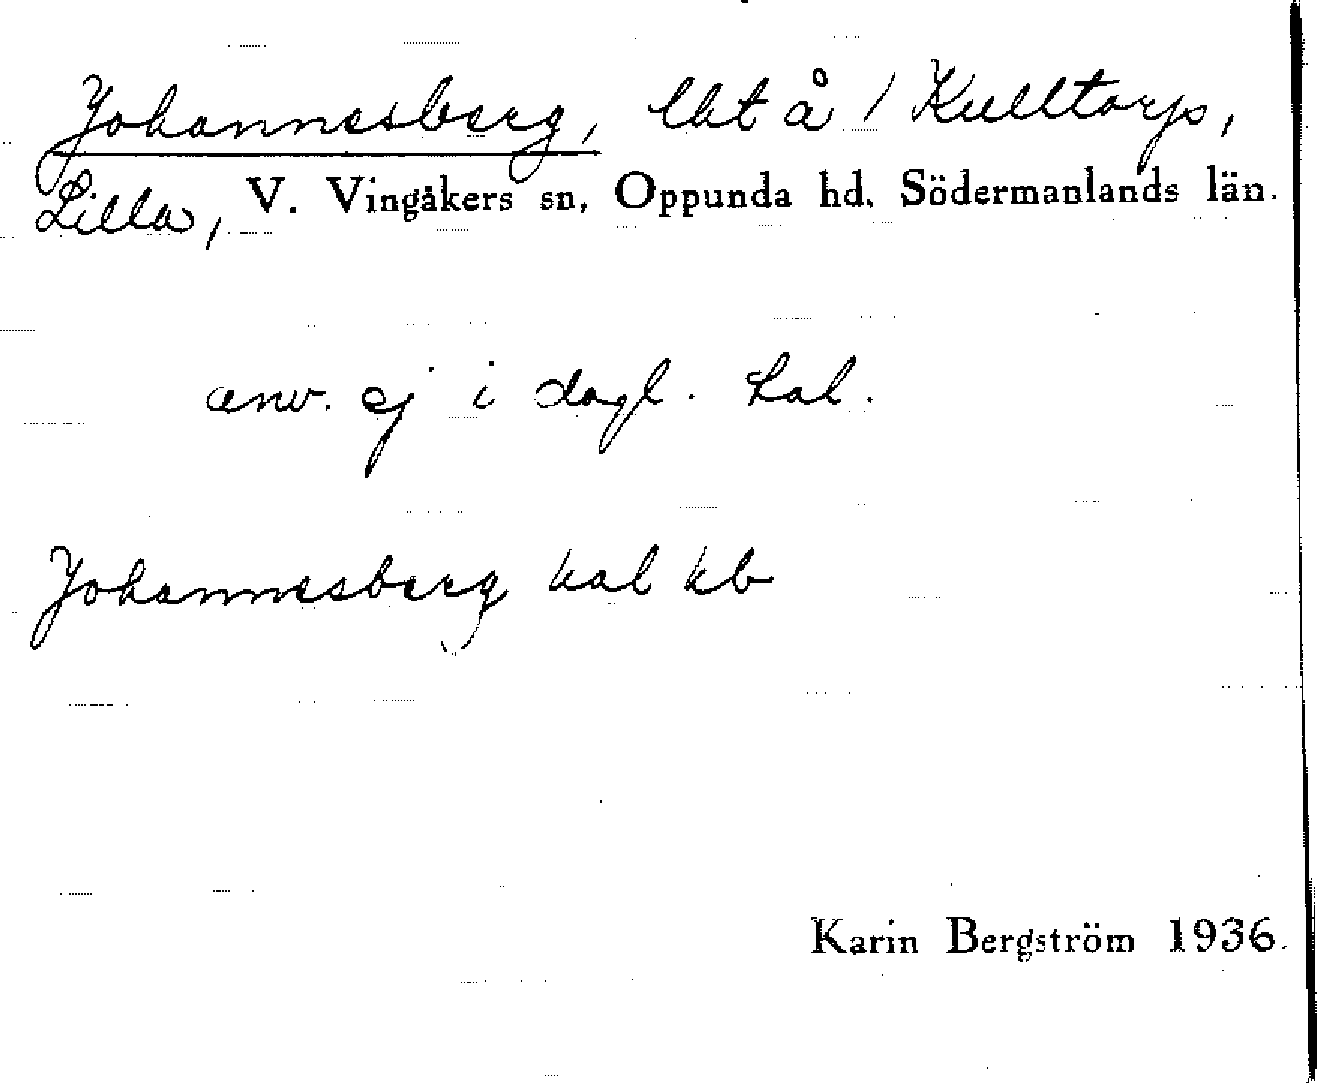 Johannesberg, lht å 1 Kulltorp,
Lilla, V. Vingåkers sn, Oppunda hd, Södermanlands län.
anv. ej i dagl. tal.
Johannesberg hal kb
Karin Bergström 1936.